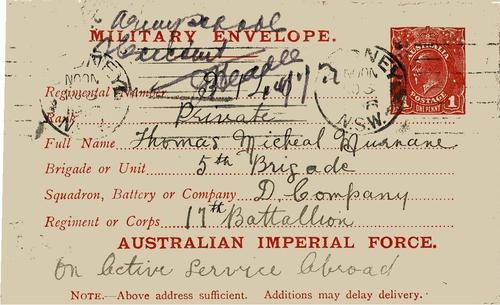 Army School
MILITARY ENVELOPE.
AUSTRALIA
POSTAGE
1
ONE PENNY
SYDNEY
NOON
N.S.W.
Regimental Number
Rank Private
Full Name Thomas Micheal Murnane
Brigade or Unit 5th Brigade
Squadron, Battery or Company D. Company
Regiment or Corps 17th Battallion
AUSTRALIAN IMPERIAL FORCE.
On Active Service Abroad
NOTE.—Above address sufficient. Additions may delay delivery.